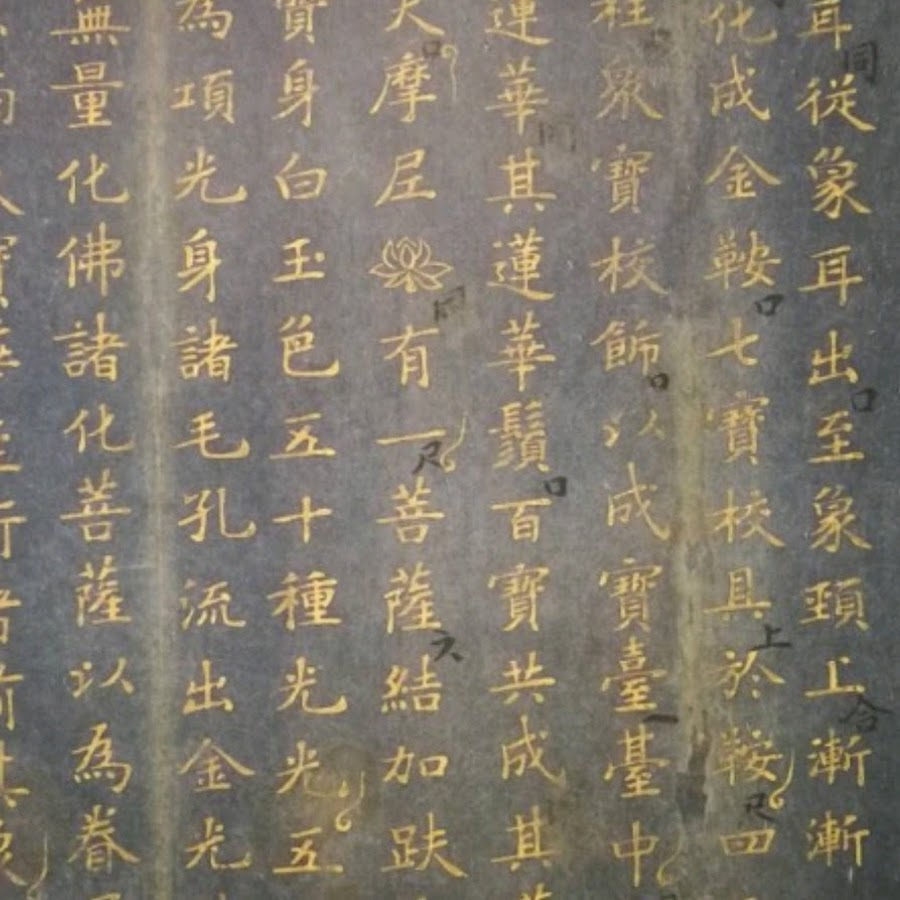 耳從象耳出至象頚上漸漸
化成金鞍七寶校具於鞍四
柱衆寶校飾以成寶臺臺中
蓮華其蓮華鬚百寶共成其
大摩尼有一菩薩結加趺
寶身白玉色五十種光光五
為項光身諸毛孔流出金光
無量化佛諸化菩薩以為眷